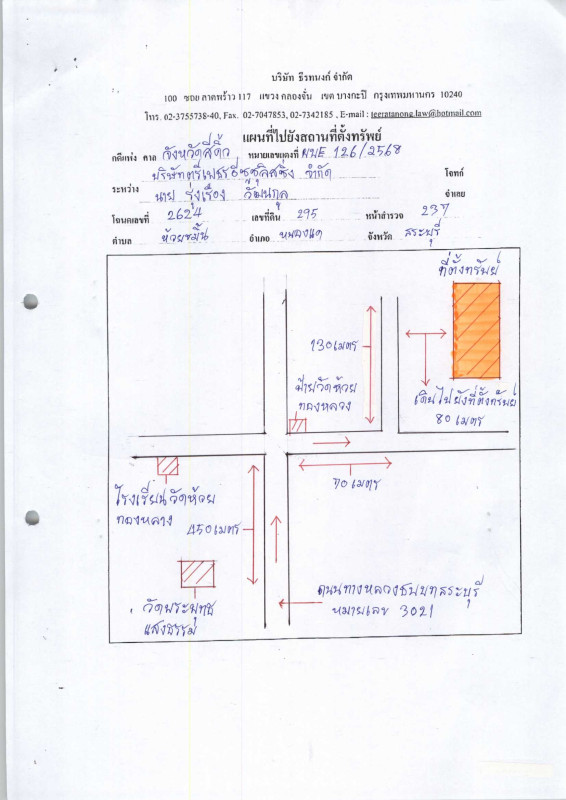 บริษัท ธีรทนงก์ จำกัด
100 ซอย ลาดพร้าว 117 แขวง คลองจั่น เขต บางกะปิ กรุงเทพมหานคร 10240
โทร. 02-3755738-40, Fax. 02-7047853, 02-7342185 , E-mail : teeratanong.law@hotmail.com
แผนที่ไปยังสถานที่ตั้งทรัพย์
คดีแพ่ง ศาล จังหวัดสีคิ้ว หมายเลขแดงที่ ผบE 126/2568
ระหว่าง บริษัทตรีเพชรอีซูซุลิสซิ่ง จำกัด โจทก์
นาย รุ่งเรือง วัฒนกูล จำเลย
โฉนดเลขที่ 2624 เลขที่ดิน 295 หน้าสำรวจ 237
ตำบล ห้วยขมิ้น อำเภอ หนองแค จังหวัด สระบุรี
ที่ตั้งทรัพย์
130 เมตร
ป้ายวัดห้วย
ทองหลาง
เดินไปยังที่ตั้งทรัพย์
80 เมตร
70 เมตร
โรงเรียนวัดห้วย
ทองหลาง
450 เมตร
วัดพระพุทธ
แสงธรรม
ถนนทางหลวงชนบทสระบุรี
หมายเลข 3021